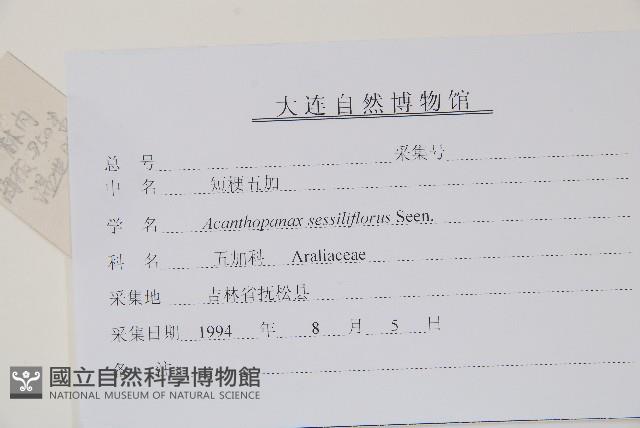 大连自然博物馆
总 号 采集号
中 名 短梗五加
学 名 Acanthopanax sessiliflorus Seen.
科 名 五加科 Araliaceae
采集地 吉林省抚松县
采集日期 1994 年 8 月 5 日
备 注
國立自然科學博物館
NATIONAL MUSEUM OF NATURAL SCIENCE